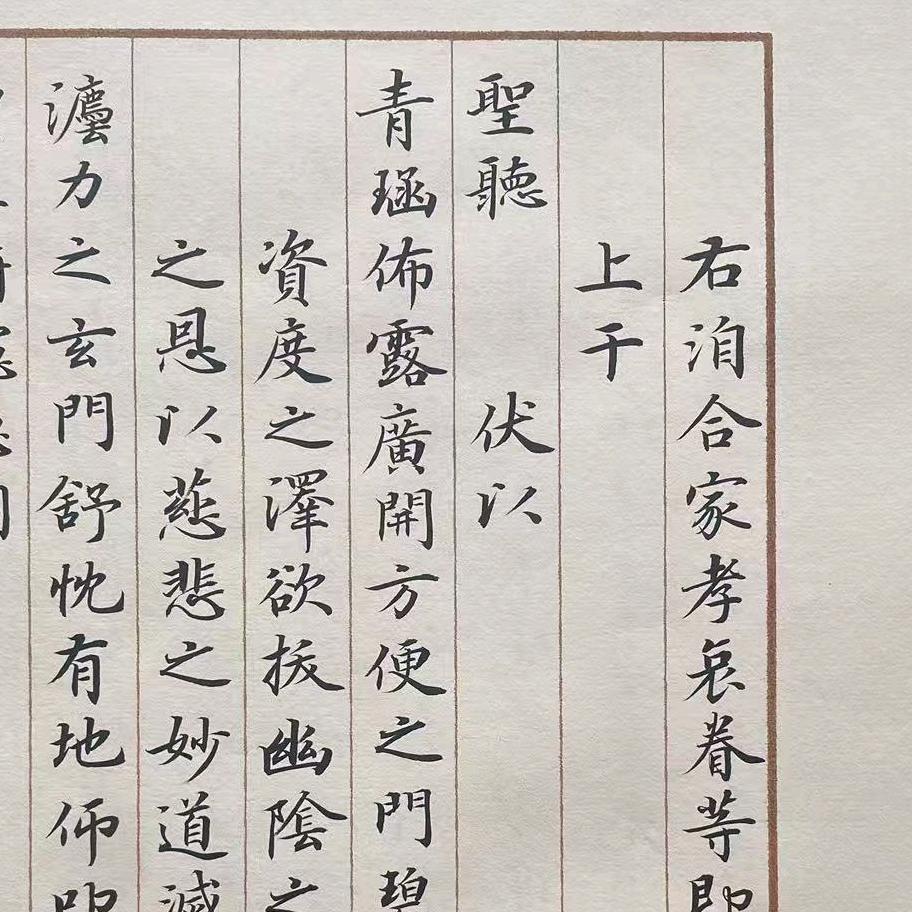 右洎合家孝哀眷等即
上干
聖聽 伏以
青佈露廣開方便之門碧
資度之澤欲拔幽陰之
之恩以慈悲之妙道滅
灋力之玄門舒忱有地仰叩